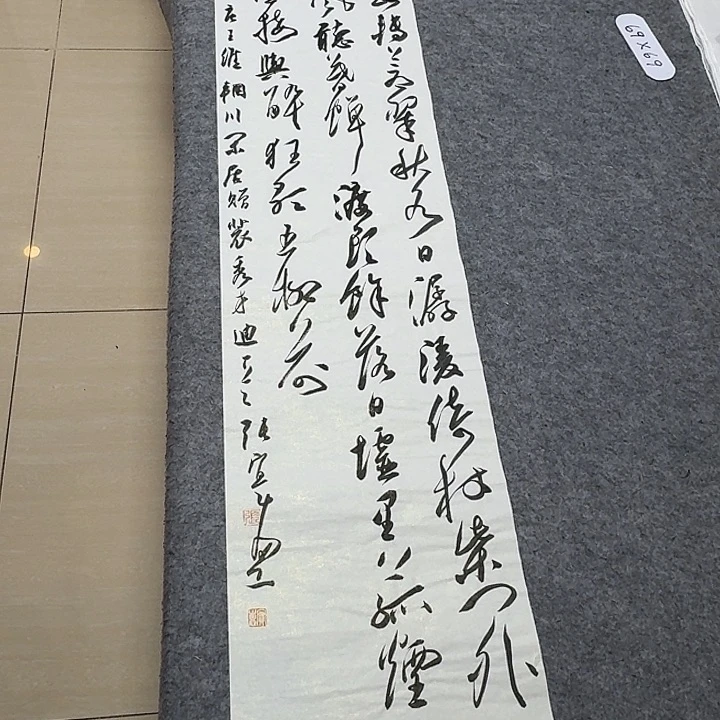 山轉蒼翠秋水日潺湲倚杖柴門外
風聽暮蟬渡頭餘落日墟里上孤煙
接輿醉狂歌五柳前
王維輞川閑居贈裴秀才迪 張宜
69×69